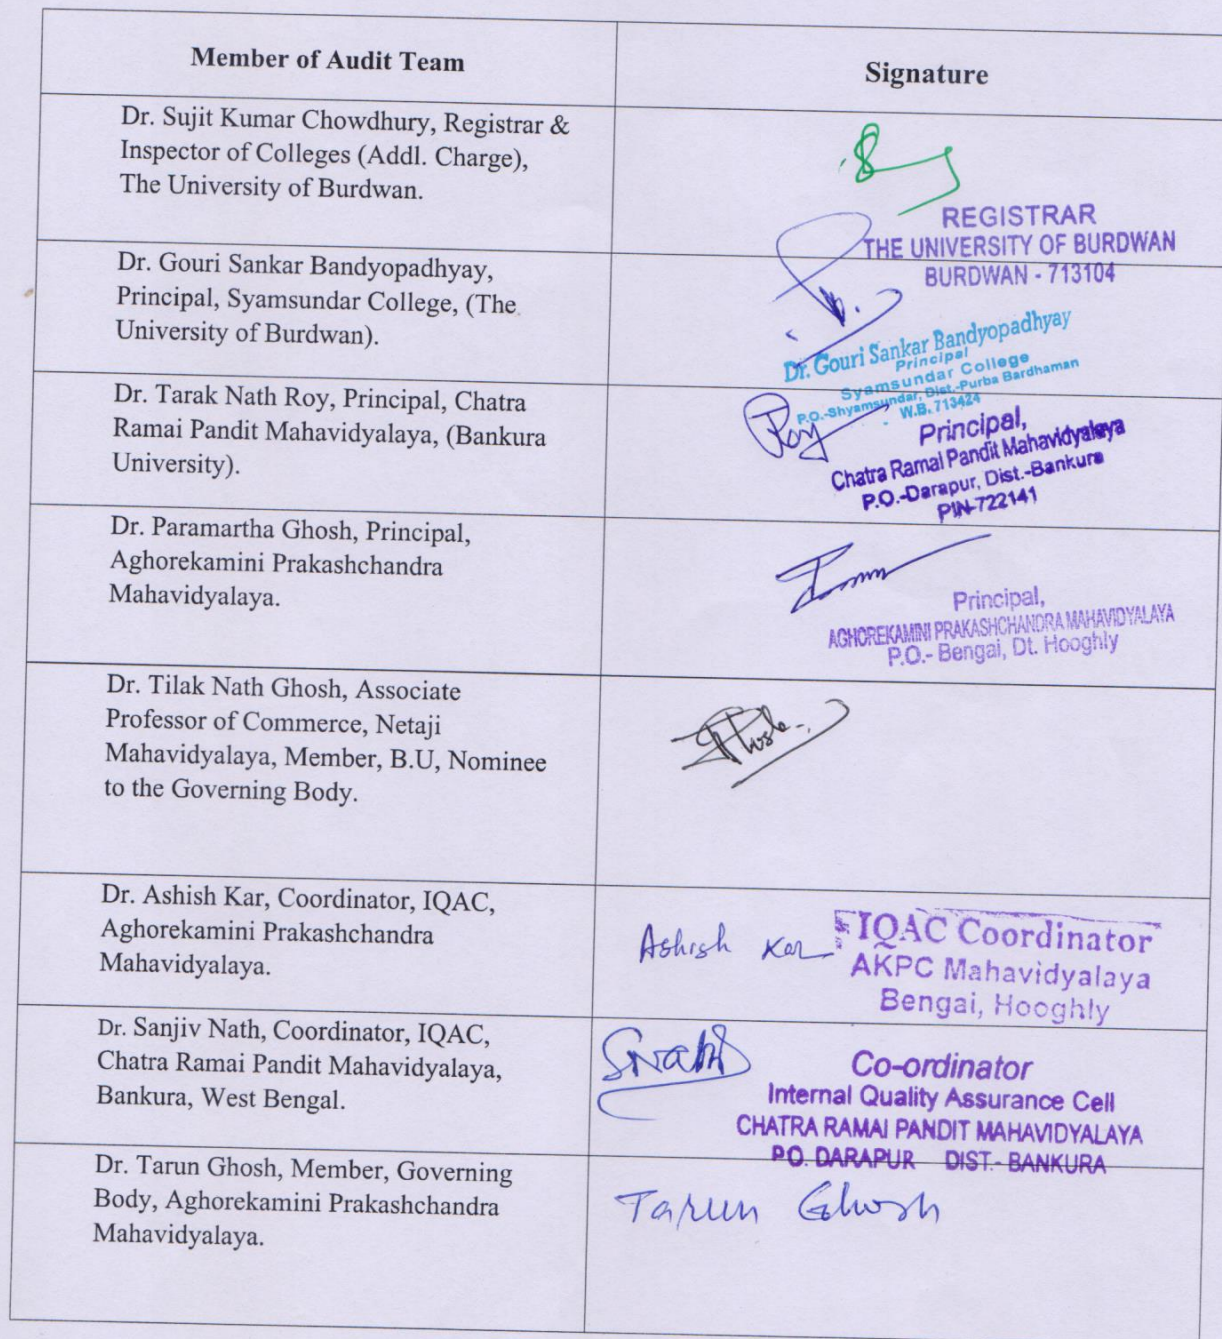 Member of Audit Team
Signature
Dr. Sujit Kumar Chowdhury, Registrar &
Inspector of Colleges (Addl. Charge),
The University of Burdwan.
REGISTRAR
THE UNIVERSITY OF BURDWAN
BURDWAN - 713104
Dr. Gouri Sankar Bandyopadhyay,
Principal, Syamsundar College, (The
University of Burdwan).
Dr. Gouri Sankar Bandyopadhyay
Principal
Syamsundar College
P.O.-Shyamsundar, Dist.-Purba Bardhaman
W.B. 713424
Dr. Tarak Nath Roy, Principal, Chatra
Ramai Pandit Mahavidyalaya, (Bankura
University).
Roy
Principal,
Chatra Ramai Pandit Mahavidyalaya
P.O.-Darapur, Dist.-Bankura
PIN-722141
Dr. Paramartha Ghosh, Principal,
Aghorekamini Prakashchandra
Mahavidyalaya.
Principal,
AGHOREKAMINI PRAKASHCHANDRA MAHAVIDYALAYA
P.O.- Bengai, Dt. Hooghly
Dr. Tilak Nath Ghosh, Associate
Professor of Commerce, Netaji
Mahavidyalaya, Member, B.U, Nominee
to the Governing Body.
Dr. Ashish Kar, Coordinator, IQAC,
Aghorekamini Prakashchandra
Mahavidyalaya.
Ashish Kar
IQAC Coordinator
AKPC Mahavidyalaya
Bengai, Hooghly
Dr. Sanjiv Nath, Coordinator, IQAC,
Chatra Ramai Pandit Mahavidyalaya,
Bankura, West Bengal.
Co-ordinator
Internal Quality Assurance Cell
CHATRA RAMAI PANDIT MAHAVIDYALAYA
P.O. DARAPUR DIST.- BANKURA
Dr. Tarun Ghosh, Member, Governing
Body, Aghorekamini Prakashchandra
Mahavidyalaya.
Tarun Ghosh